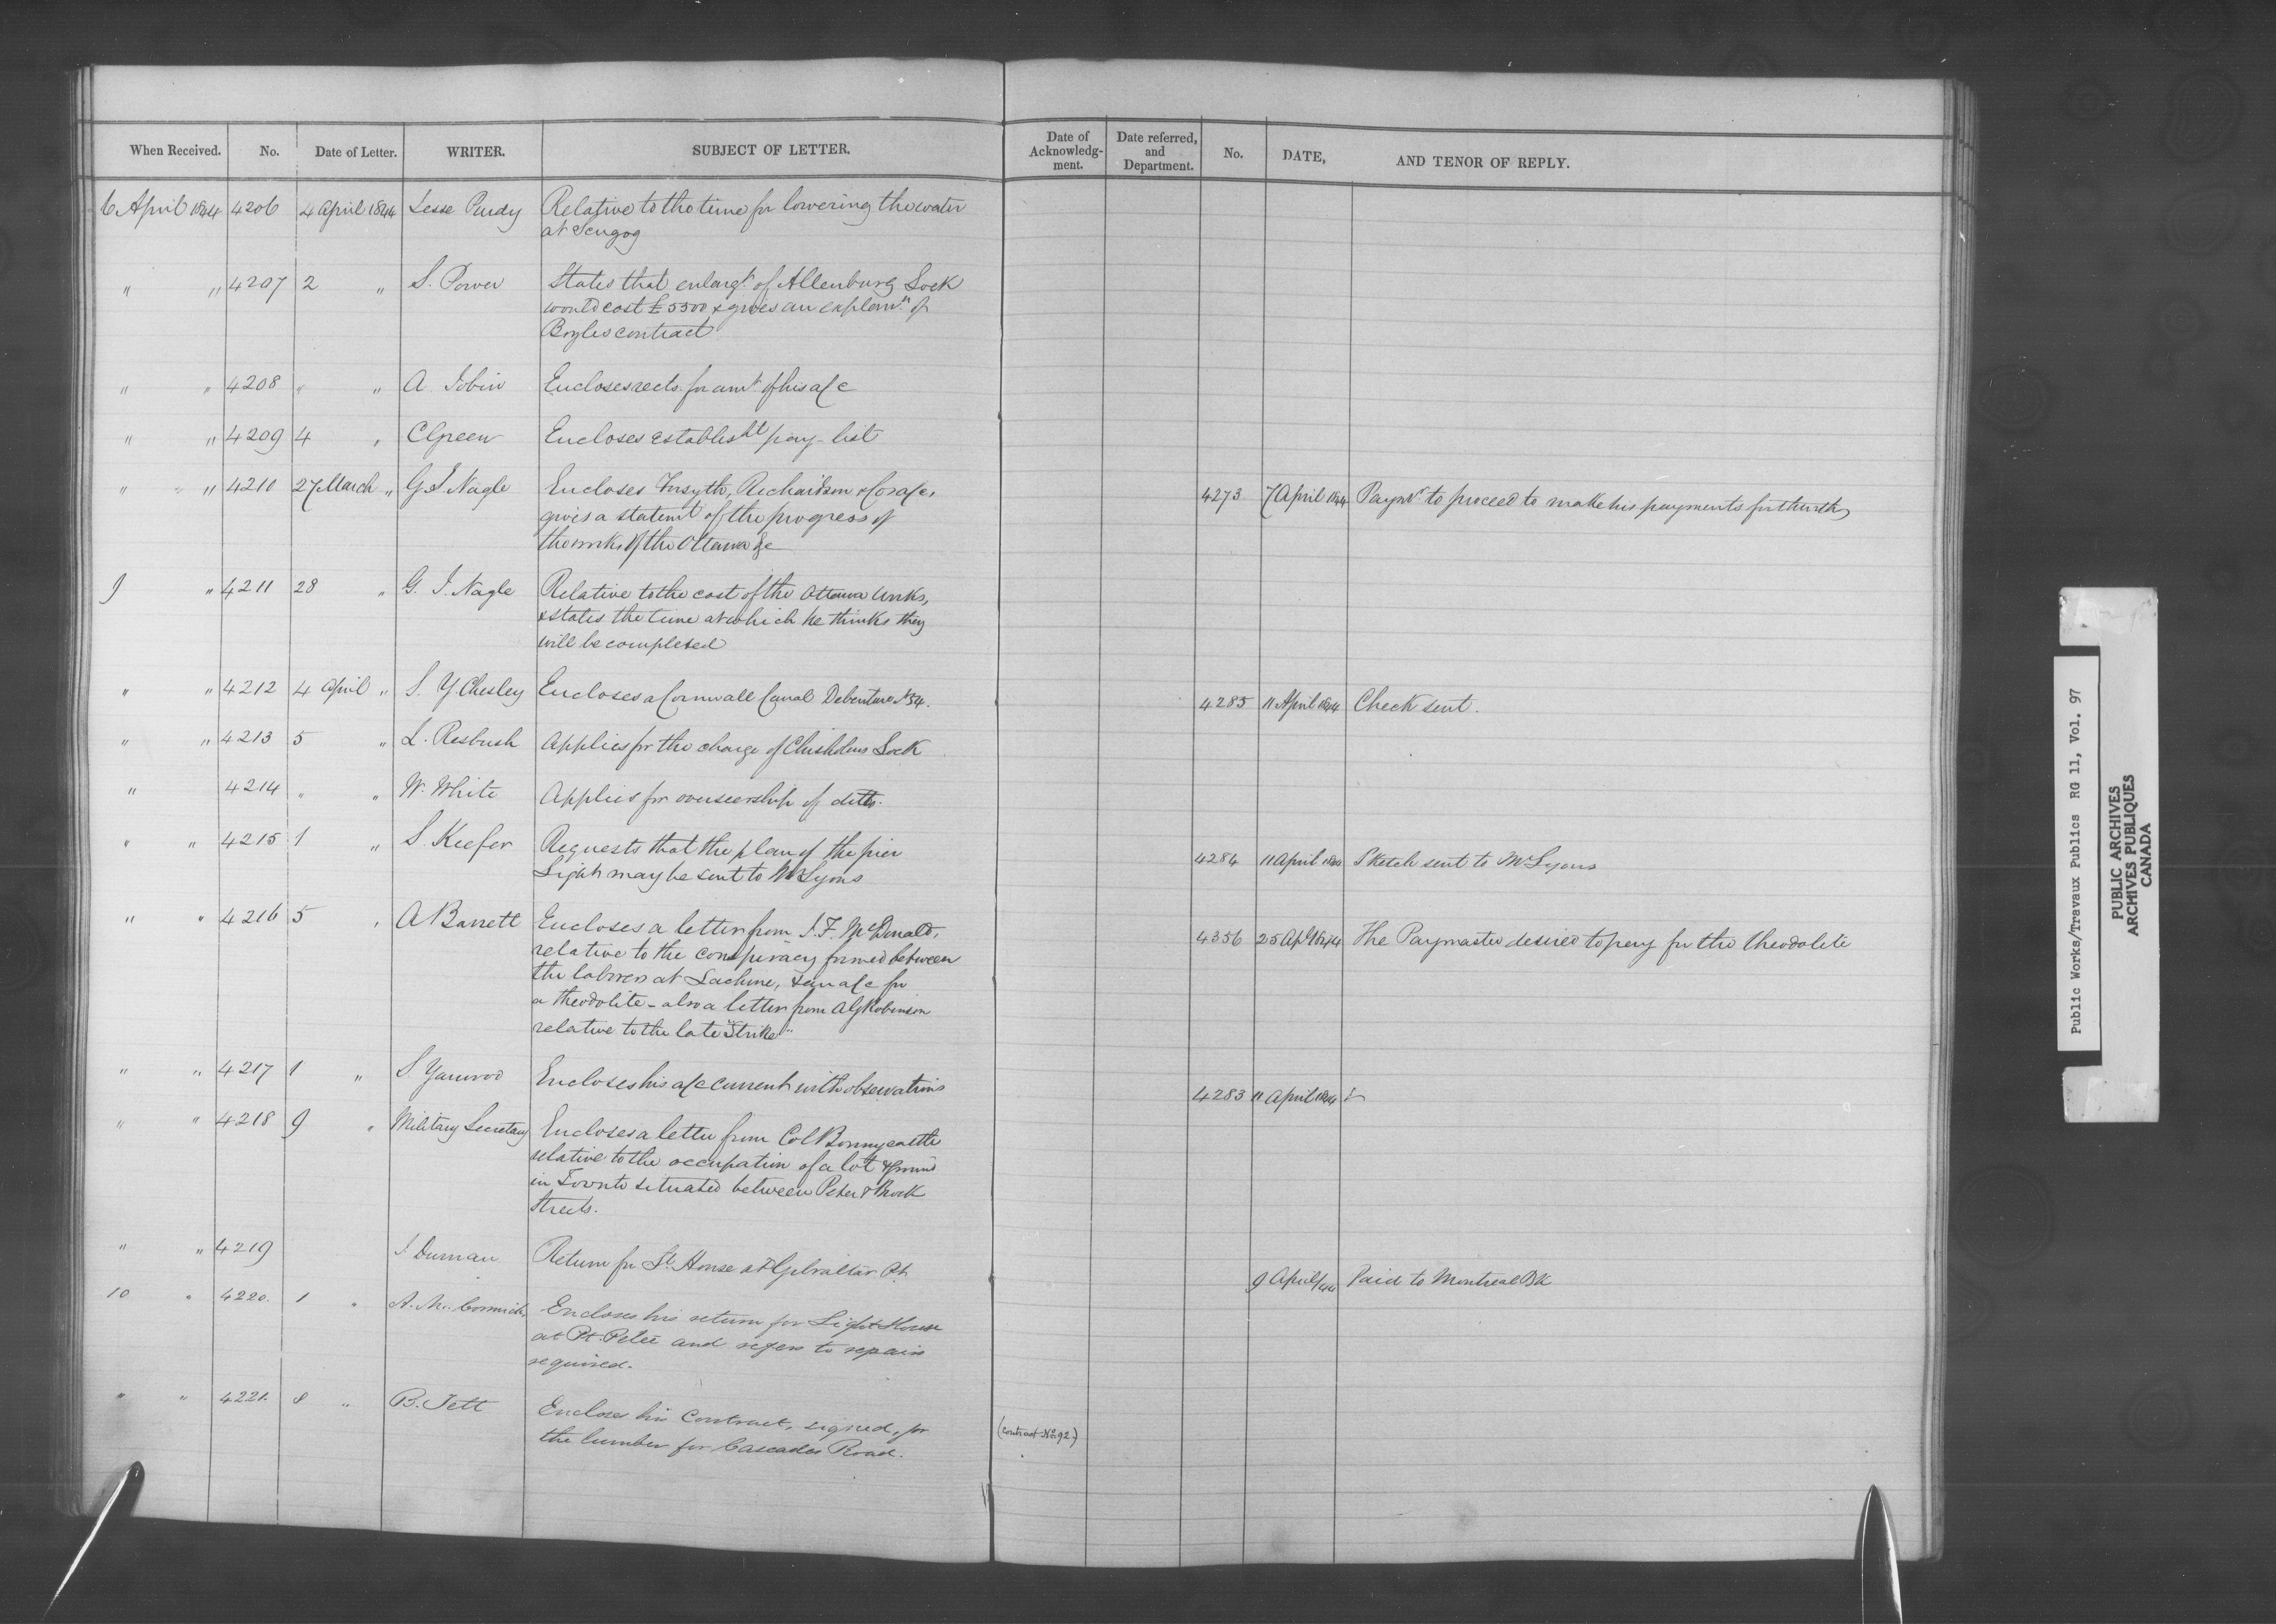 When Received. No. Date of Letter. WRITER. SUBJECT OF LETTER. Date of Acknowledg-ment. Date referred, and Department. No. DATE, AND TENOR OF REPLY.
6 April 1844 4206 4 April 1844 Jesse Purdy Relative to the time for lowering the water
at Scugog
" " 4207 2 " S. Power States that enlargt. of Allenburg Lock
would cost £5500 & gives an explann. of
Boyles contract
" " 4208 " " A. Tobin Encloses rects. for amt. of his a/c
" " 4209 4 " C Green Encloses establisht pay-list
" " 4210 27 March " G. J. Nagle Encloses Forsyth, Richardson & Co's a/c, 4273 7 April 1844 Paymr. to proceed to make his payments forthwith
gives a statemt of the progress of
the works of the Ottawa &c
9 " 4211 28 " G. J. Nagle Relative to the cost of the Ottawa Works,
& states the time at which he thinks they
will be completed
" " 4212 4 April " S. Y. Chesley Encloses a Cornwall Canal Debenture No 54. 4285 11 April 1844 Check sent.
" " 4213 5 " L. Resbush Applies for the charge of Chisholms Lock
" 4214 " " W. White Applies for overseership of ditto.
" " 4215 1 " S. Keefer Requests that the plan of the pier 4284 11 April 1844 Sketch sent to Mr Lyons
Light may be sent to Mr Lyons
" " 4216 5 " A Barrett Encloses a letter from J. F. McDonald, 4356 25 Apl 1844 The Paymaster desired to pay for the theodolite
relative to the conspiracy formed between
the laborers at Lachine, & an a/c for
a theodolite - also a letter from A G Robinson
relative to the late "Strike"
" " 4217 1 " S. Yarwood Encloses his a/c current with observations 4283 11 April 1844
" " 4218 9 " Military Secretary Encloses a letter from Col Bonnycastle
relative to the occupation of a lot of ground
in Toronto situated between Peter & Brock
Streets.
" " 4219 J. Durnan Return for Lt. House at Gibraltar Pt. 9 April/44 Paid to Montreal Bk
10 " 4220. 1 " A. McCormick, Encloses his return for Light House
at Pt. Pelée and refers to repairs
required.
" " 4221. 8 " B. Tett Encloses his Contract, signed, for
the lumber for Cascades Road. (Contract No. 92.)
Public Works/Travaux Publics RG 11, Vol. 97
PUBLIC ARCHIVES
ARCHIVES PUBLIQUES
CANADA